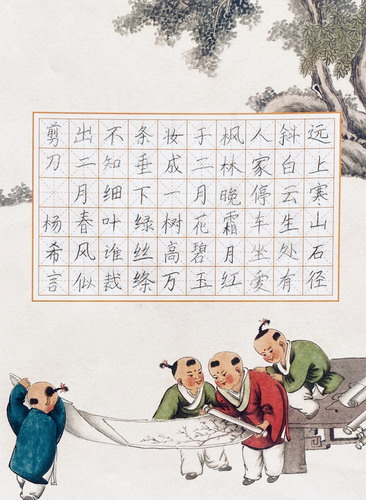 远上寒山石径
斜白云生处有
人家停车坐愛
枫林晚霜月红
于二月花碧玉
妆成一树高万
条垂下绿丝绦
不知细叶谁裁
出二月春风似
剪刀 杨希言